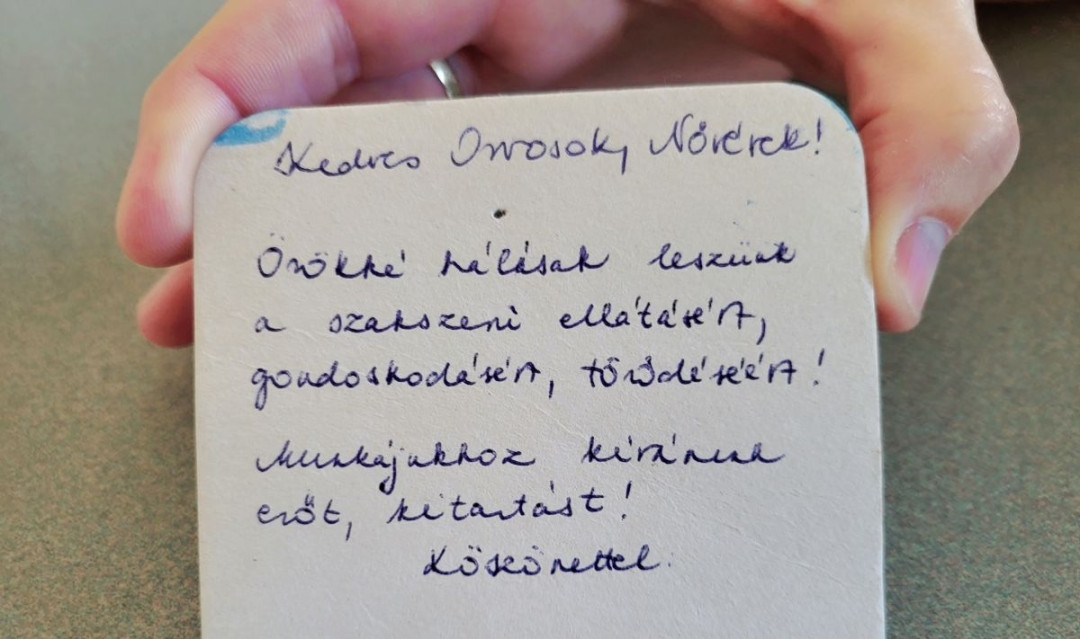 Kedves Orvosok, Nővérek!
Örökké hálásak leszünk
a szakszerű ellátásért,
gondoskodásért, törődéséért!
Munkájukhoz kívánunk
erőt, kitartást!
Köszönettel.